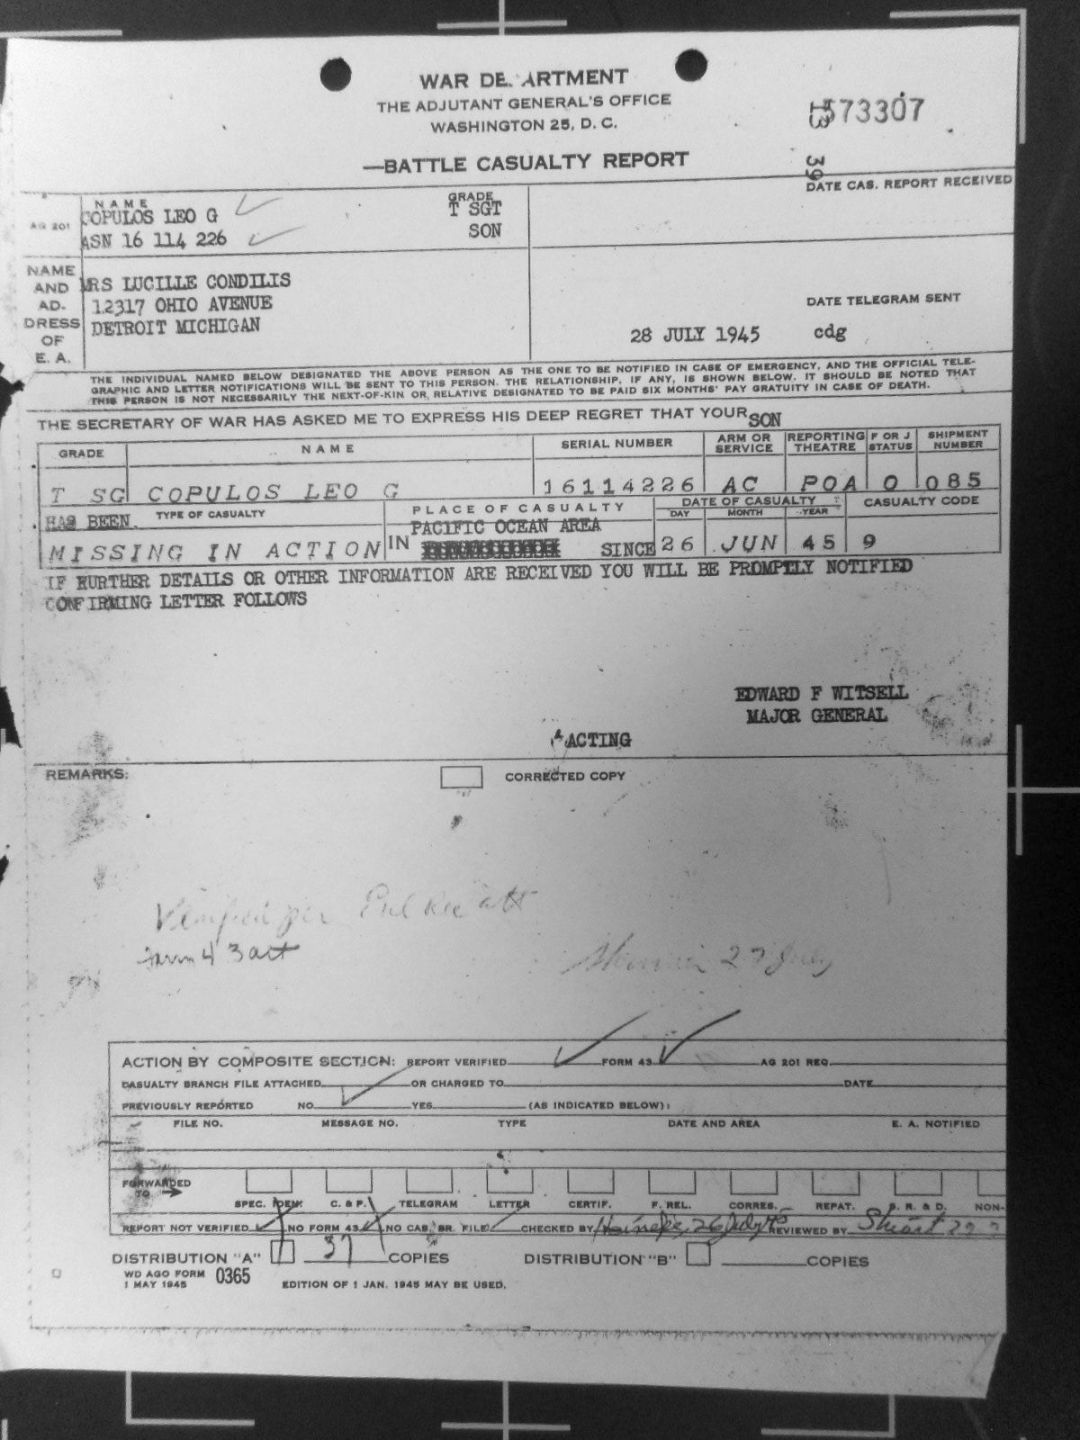 WAR DEPARTMENT
THE ADJUTANT GENERAL'S OFFICE
WASHINGTON 25, D. C.
573307
13 39
—BATTLE CASUALTY REPORT
DATE CAS. REPORT RECEIVED
AG 201
NAME
COPULOS LEO G
ASN 16 114 226
GRADE
T SGT
SON
NAME AND AD-DRESS OF E. A.
MRS LUCILLE CONDILIS
12317 OHIO AVENUE
DETROIT MICHIGAN
DATE TELEGRAM SENT
28 JULY 1945 cdg
THE INDIVIDUAL NAMED BELOW DESIGNATED THE ABOVE PERSON AS THE ONE TO BE NOTIFIED IN CASE OF EMERGENCY, AND THE OFFICIAL TELE-
GRAPHIC AND LETTER NOTIFICATIONS WILL BE SENT TO THIS PERSON. THE RELATIONSHIP, IF ANY, IS SHOWN BELOW. IT SHOULD BE NOTED THAT
THIS PERSON IS NOT NECESSARILY THE NEXT-OF-KIN OR RELATIVE DESIGNATED TO BE PAID SIX MONTHS' PAY GRATUITY IN CASE OF DEATH.
THE SECRETARY OF WAR HAS ASKED ME TO EXPRESS HIS DEEP REGRET THAT YOUR SON
GRADE NAME SERIAL NUMBER ARM OR SERVICE REPORTING THEATRE F OR J STATUS SHIPMENT NUMBER
T SG COPULOS LEO G 16114226 AC POA O 085
HAS BEEN TYPE OF CASUALTY PLACE OF CASUALTY DATE OF CASUALTY CASUALTY CODE
DAY MONTH YEAR
PACIFIC OCEAN AREA
MISSING IN ACTION IN SINCE 26 JUN 45 9
IF FURTHER DETAILS OR OTHER INFORMATION ARE RECEIVED YOU WILL BE PROMPTLY NOTIFIED
CONFIRMING LETTER FOLLOWS
EDWARD F WITSELL
MAJOR GENERAL
ACTING
REMARKS:
CORRECTED COPY
Verified per
Form 43 att
27 July
ACTION BY COMPOSITE SECTION: REPORT VERIFIED FORM 43 AG 201 REQ
CASUALTY BRANCH FILE ATTACHED OR CHARGED TO DATE
PREVIOUSLY REPORTED NO YES (AS INDICATED BELOW):
FILE NO. MESSAGE NO. TYPE DATE AND AREA E. A. NOTIFIED
FORWARDED TO
SPEC. IDEN. C. & P. TELEGRAM LETTER CERTIF. F. REL. CORRES. REPAT. P. R. & D. NON-
REPORT NOT VERIFIED NO FORM 43 NO CAS. BR. FILE CHECKED BY 26 July 45 REVIEWED BY Stuart
DISTRIBUTION "A" 37 COPIES DISTRIBUTION "B" COPIES
WD AGO FORM 0365
1 MAY 1945
EDITION OF 1 JAN. 1945 MAY BE USED.